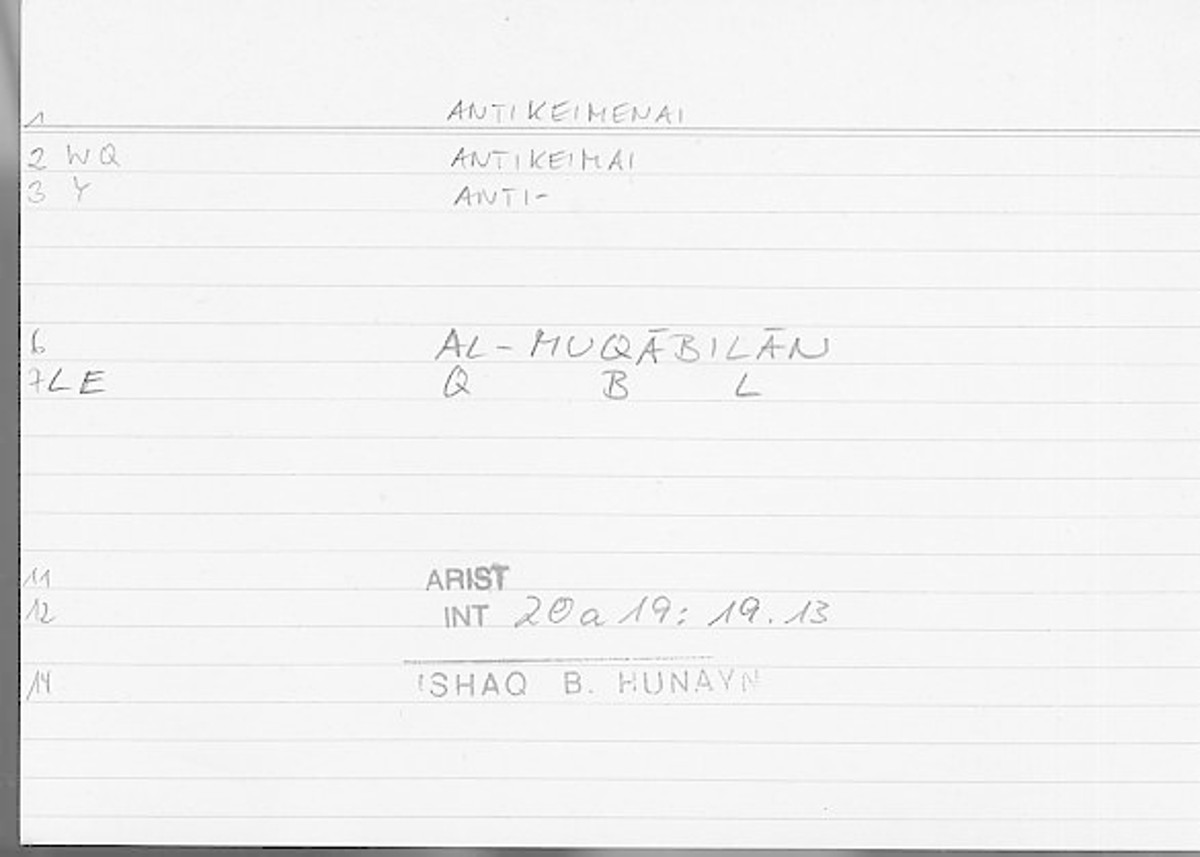 1 ANTIKEIMENAI
2 WQ ANTIKEIMAI
3 Y ANTI-
6 AL-MUQĀBILĀN
7 LE Q B L
11 ARIST
12 INT 20a19: 19.13
14 ISHAQ B. HUNAYN